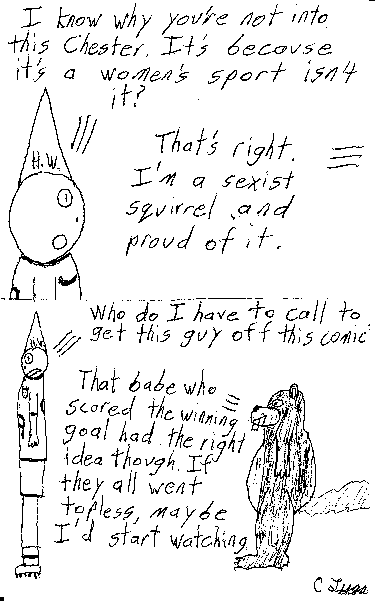 I know why you're not into
this Chester. It's because
it's a women's sport isn't
it?
H.W.
That's right.
I'm a sexist
squirrel and
proud of it.
Who do I have to call to
get this guy off this comic
That babe who
scored the winning
goal had the right
idea though. If
they all went
topless, maybe
I'd start watching
C